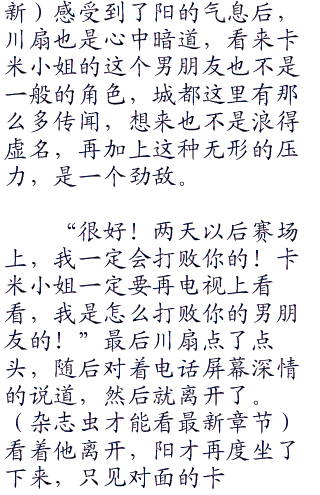 新）感受到了阳的气息后，
川扇也是心中暗道，看来卡
米小姐的这个男朋友也不是
一般的角色，城都这里有那
么多传闻，想来也不是浪得
虚名，再加上这种无形的压
力，是一个劲敌。
“很好！两天以后赛场
上，我一定会打败你的！卡
米小姐一定要再电视上看
看，我是怎么打败你的男朋
友的！”最后川扇点了点
头，随后对着电话屏幕深情
的说道，然后就离开了。
（杂志虫才能看最新章节）
看着他离开，阳才再度坐了
下来，只见对面的卡